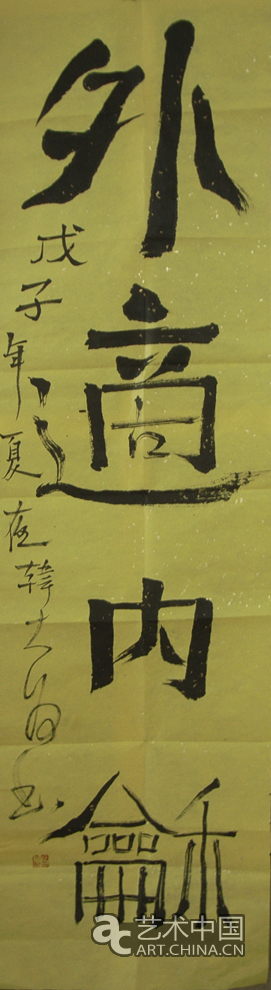 外適内龢
戊子年夏夜韓大 书
ac 艺术中国
ART.CHINA.CN